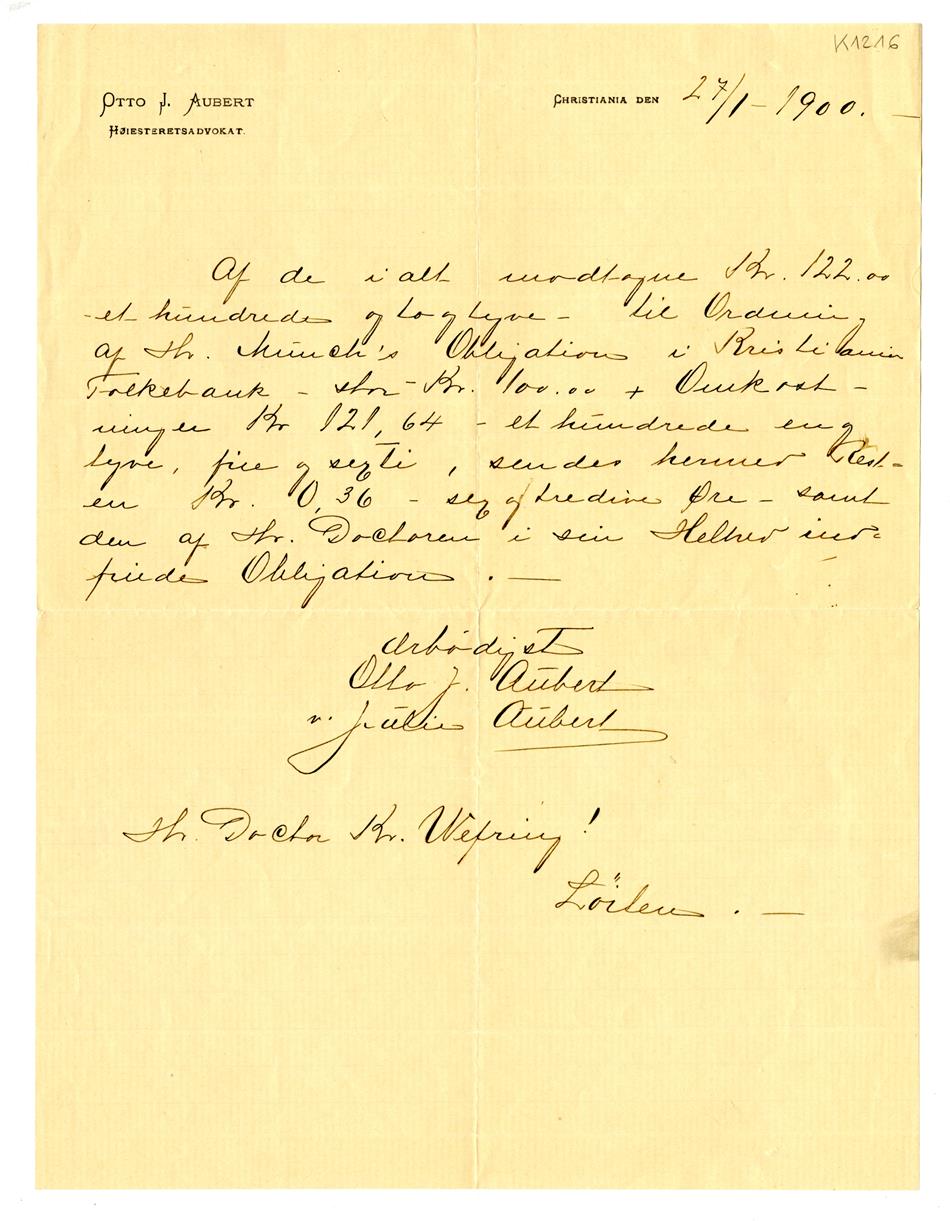 K1216
OTTO J. AUBERT
HØIESTERETSADVOKAT.
CHRISTIANIA DEN 27/1 – 1900. –
Af de ialt modtagne Kr. 122.00
- et hundrede og to og tyve – til Ordning
af Hr. Munch's Obligation i Kristiania
Folkebank – stor – Kr. 100.00 + Omkost –
ninger Kr 121,64 – et hundrede en og
tyve, fire og sexti, sendes hermed Rest-
en Kr. 0,36 – sex og tredive Øre – samt
den af Hr. Doctoren i sin Helhed ind-
friede Obligation . —
Ærbödigst
Otto J. Aubert
v. Julie Aubert
Hr. Doctor Kr. Wefring!
Löiten . —